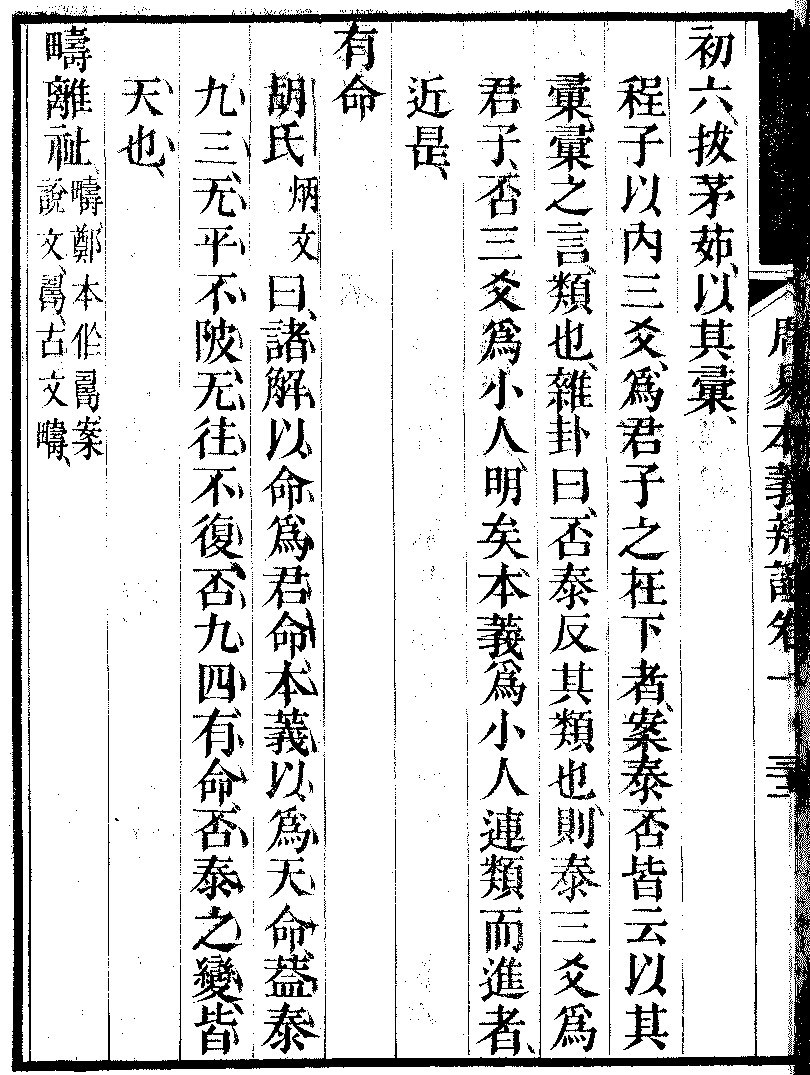 初六、拔茅茹、以其彙、
程子以内三爻、爲君子之在下者、案泰否皆云以其
彙、彙之言、類也、雜卦曰、否泰反其類也、則泰三爻爲
君子、否三爻爲小人、明矣、本義爲小人連類而進者、
近是、
有命
胡氏炳文曰、諸解以命爲君命、本義以爲天命、葢泰
九三、无平不陂、无往不復、否九四、有命、否泰之變、皆
天也、
疇離祉、疇、鄭本作𠷎、案
說文、𠷎、古文疇、
周易本義辨證卷一